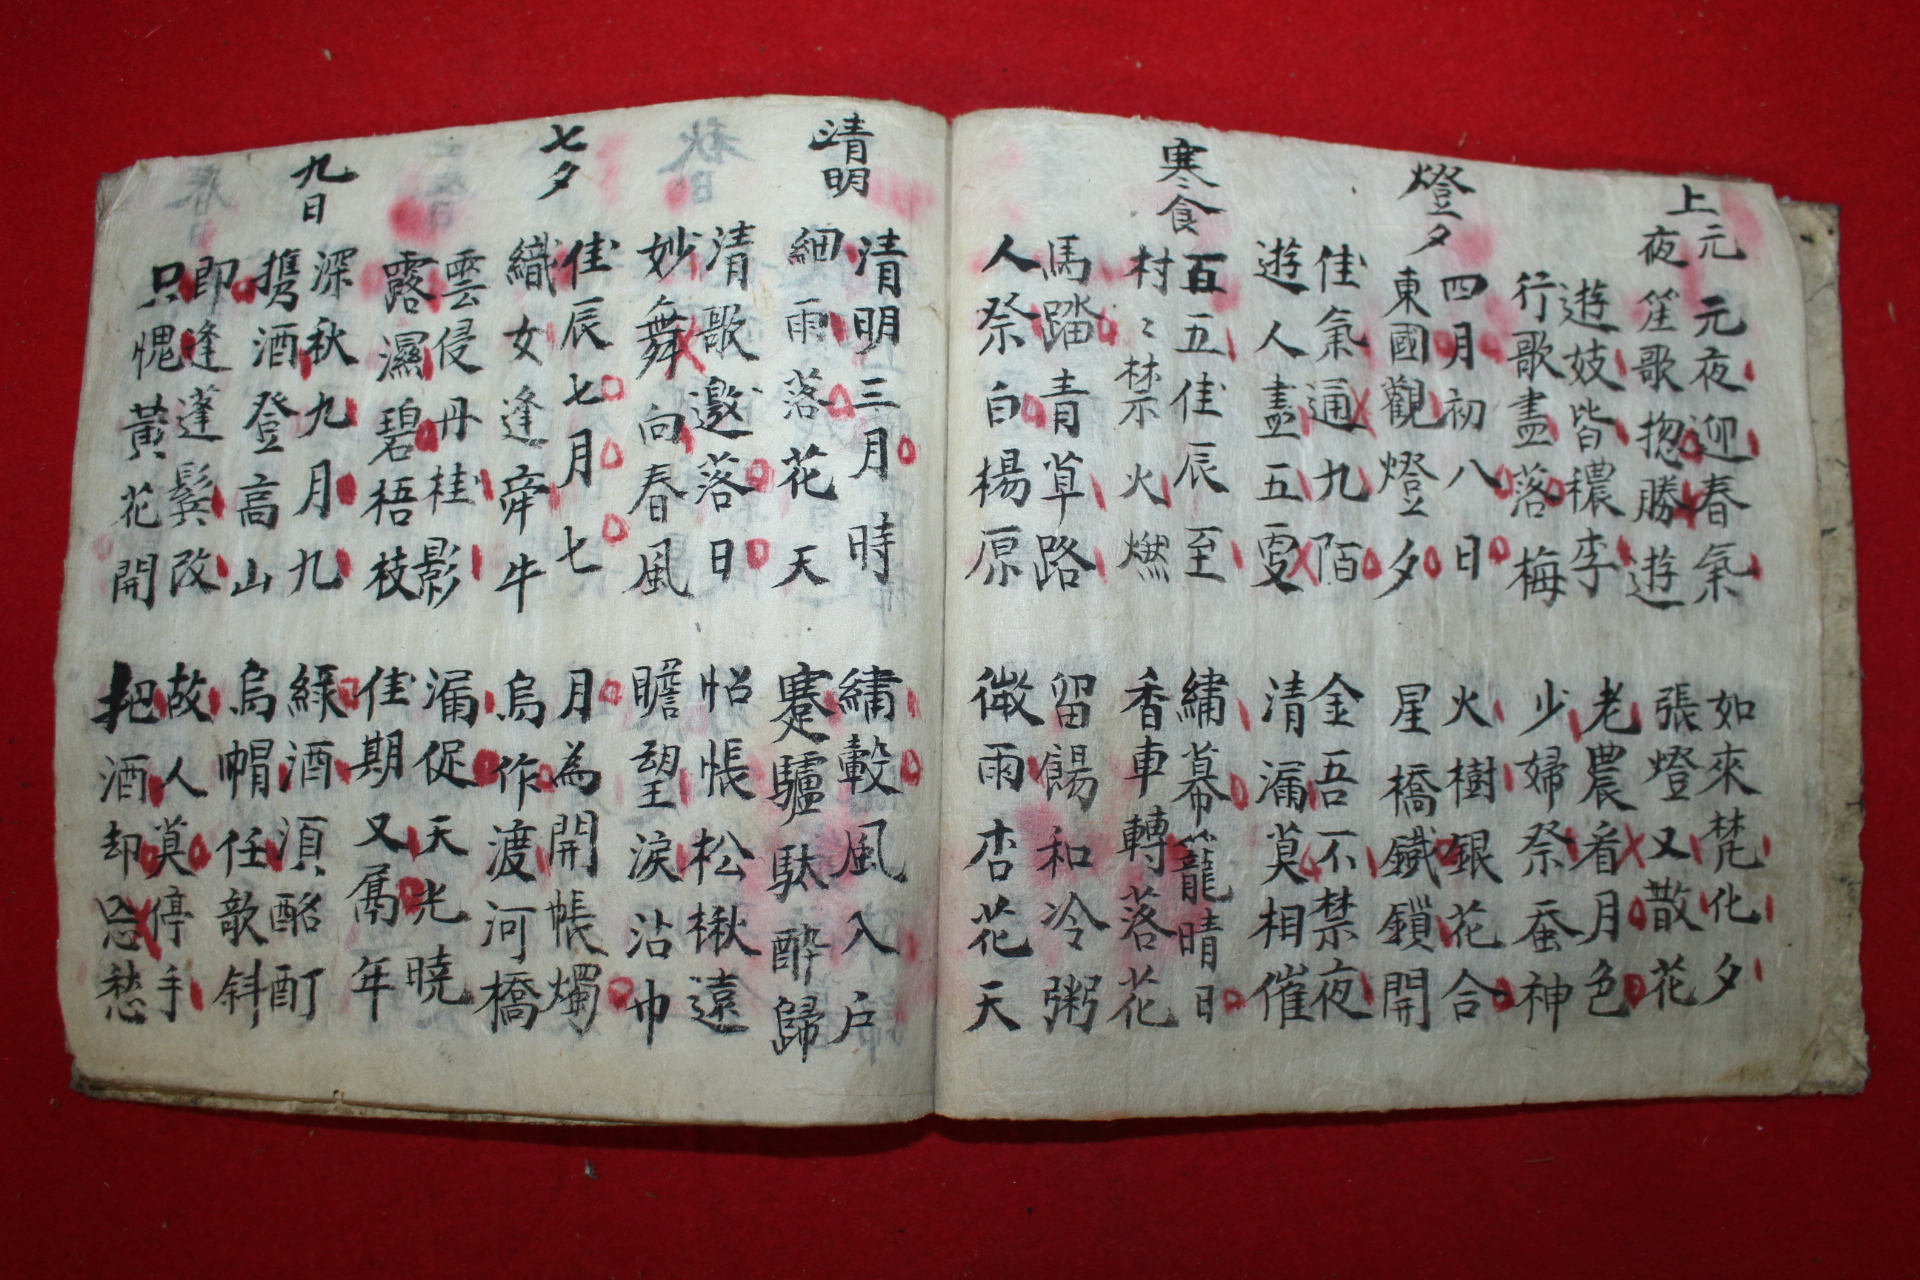 上元
元夜迎春氣
如來梵化夕
夜笙歌揔勝遊
張燈又散花
遊妓皆穠李
老農看月色
行歌盡落梅
少婦祭蚕神
燈夕
四月初八日
火樹銀花合
東國觀燈夕
星橋鐵鎖開
佳氣通九陌
金吾不禁夜
遊人盡五更
清漏莫相催
寒食
百五佳辰至
繡幕籠晴日
村〻禁火燃
香車轉落花
馬踏青草路
留餳和冷粥
人祭白楊原
微雨杏花天
清明
清明三月時
繡轂風入戶
細雨落花天
蹇驢馱醉歸
清歌邀落日
怊悵松楸遠
妙舞向春風
瞻望淚沾巾
七夕
佳辰七月七
月為開帳燭
織女逢牽牛
烏作渡河橋
雲侵丹桂影
漏促天光曉
露濕碧梧枝
佳期又屬年
九日
深秋九月九
綠酒須酩酊
携酒登高山
烏帽任欹斜
即逢蓬鬂改
故人莫停手
只愧黃花開
把酒却忩愁